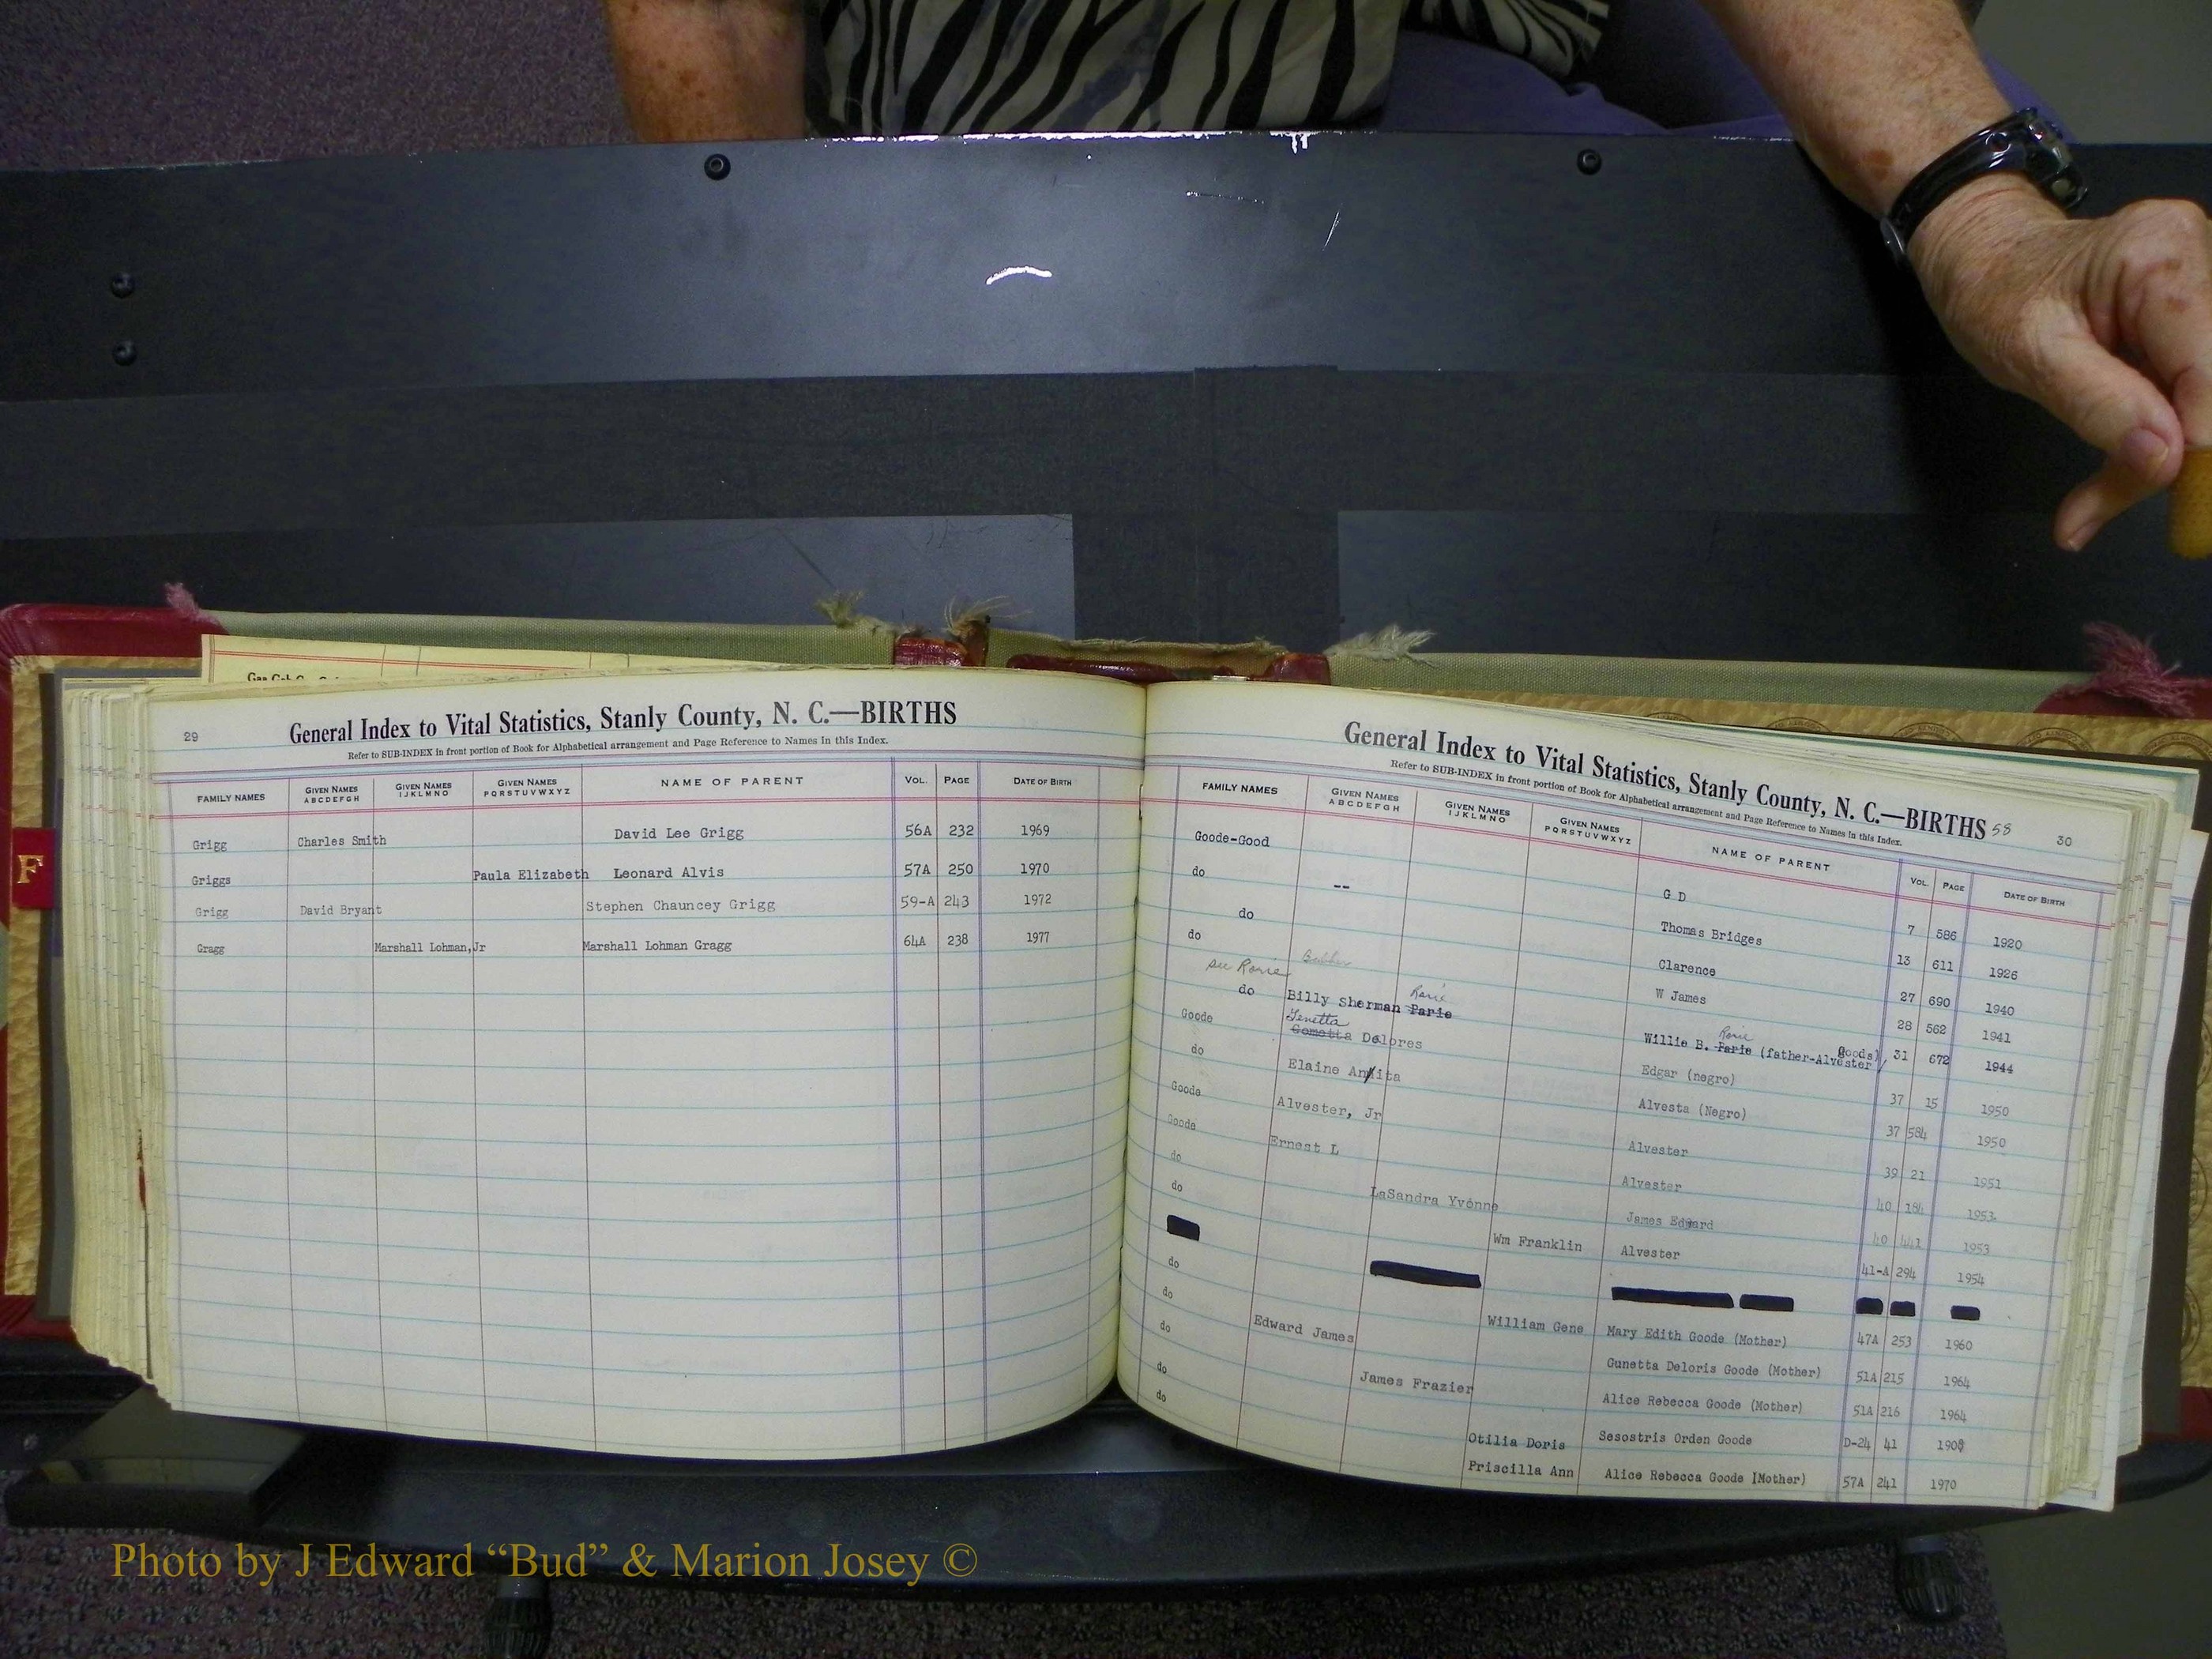 F
29
General Index to Vital Statistics, Stanly County, N. C.—BIRTHS
Refer to SUB-INDEX in front portion of Book for Alphabetical arrangement and Page Reference to Names in this Index.
FAMILY NAMES GIVEN NAMES ABCDEFGH GIVEN NAMES IJKLMNO GIVEN NAMES PQRSTUVWXYZ NAME OF PARENT VOL. PAGE DATE OF BIRTH
Grigg Charles Smith David Lee Grigg 56A 232 1969
Griggs Paula Elizabeth Leonard Alvis 57A 250 1970
Grigg David Bryant Stephen Chauncey Grigg 59-A 243 1972
Gragg Marshall Lohman,Jr Marshall Lohman Gragg 64A 238 1977
General Index to Vital Statistics, Stanly County, N. C.—BIRTHS 58 30
Refer to SUB-INDEX in front portion of Book for Alphabetical arrangement and Page Reference to Names in this Index.
FAMILY NAMES GIVEN NAMES ABCDEFGH GIVEN NAMES IJKLMNO GIVEN NAMES PQRSTUVWXYZ NAME OF PARENT VOL. PAGE DATE OF BIRTH
Goode-Good -- G D 7 586 1920
do Thomas Bridges 13 611 1926
do Clarence 27 690 1940
do W James 28 562 1941
see Rorie Rorie Rorie
do Billy Sherman Parie Willie B. Parie (father-Alvester Goods) 31 672 1944
Genetta
Goode Delores Edgar (negro) 37 15 1950
do Elaine Anita Alvesta (Negro) 37 584 1950
Goode Alvester, Jr Alvester 39 21 1951
Goode Ernest L Alvester 40 184 1953
do LaSandra Yvonne James Edward 40 441 1953
do Wm Franklin Alvester 41-A 294 1954
do William Gene Mary Edith Goode (Mother) 47A 253 1960
do Edward James Gunetta Deloris Goode (Mother) 51A 215 1964
do James Frazier Alice Rebecca Goode (Mother) 51A 216 1964
do Otilia Doris Sesostris Orden Goode D-24 41 1908
do Priscilla Ann Alice Rebecca Goode (Mother) 57A 241 1970
Photo by J Edward “Bud” & Marion Josey ©